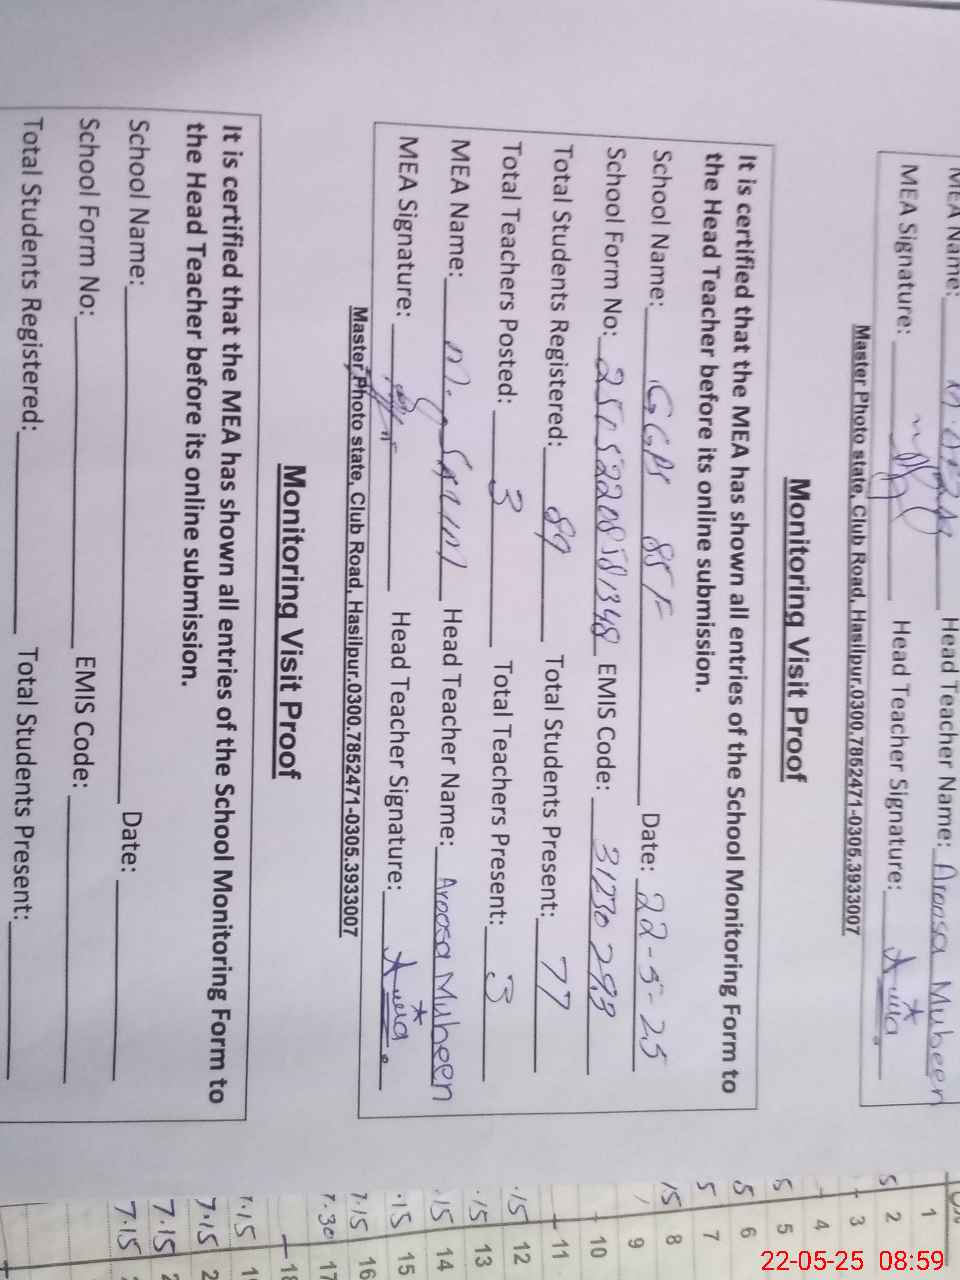 MEA Name:
Head Teacher Name: Aroosa Mubeen
MEA Signature: Head Teacher Signature:
Master Photo state, Club Road, Hasilpur.0300.7862471-0305.3933007
Monitoring Visit Proof
It is certified that the MEA has shown all entries of the School Monitoring Form to
the Head Teacher before its online submission.
School Name: GGPS 85 F Date: 22-5-25
School Form No: EMIS Code:
Total Students Registered: 89 Total Students Present: 77
Total Teachers Posted: 3 Total Teachers Present: 3
MEA Name: Head Teacher Name: Aroosa Mubeen
MEA Signature: Head Teacher Signature:
Master Photo state, Club Road, Hasilpur.0300.7862471-0305.3933007
Monitoring Visit Proof
It is certified that the MEA has shown all entries of the School Monitoring Form to
the Head Teacher before its online submission.
School Name: Date:
School Form No: EMIS Code:
Total Students Registered: Total Students Present:
1
2 5
3
4
5 5
6 5
7 5
8 15
9
10
11
12 .15
13 .15
14 .15
15 .15
16 7.15
17 7.30
18
7.15
7.15
7.15
7.15
22-05-25 08:59